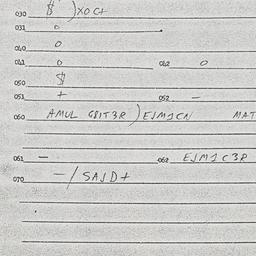 030 $ )XOC+
031 0
040 0
041 0 042 0
050 $
051 + 052 -
060 AMUL GBIT3R)EJM1CN MAT
061 - 062 EJM1C3R
070 -/SAJD+